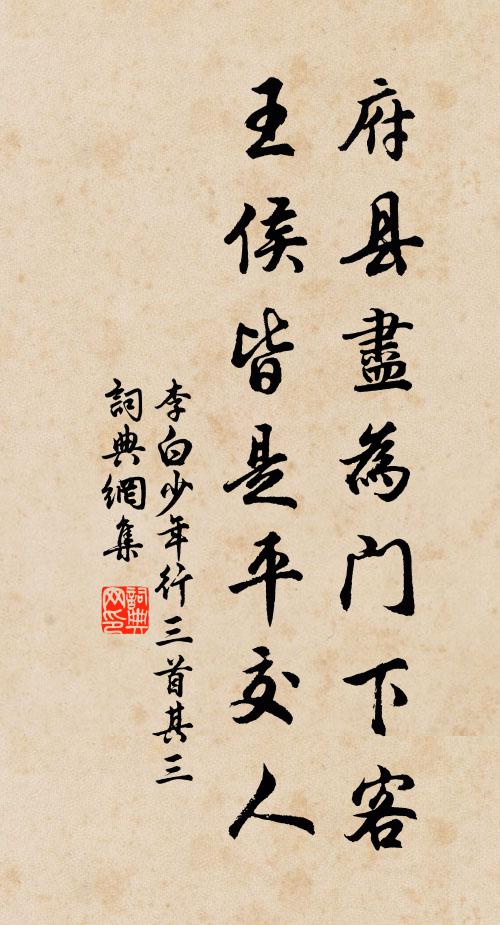 府县盡為门下客
王侯皆是平交人
李白少年行三首其三
詞典網集
詞典
网印